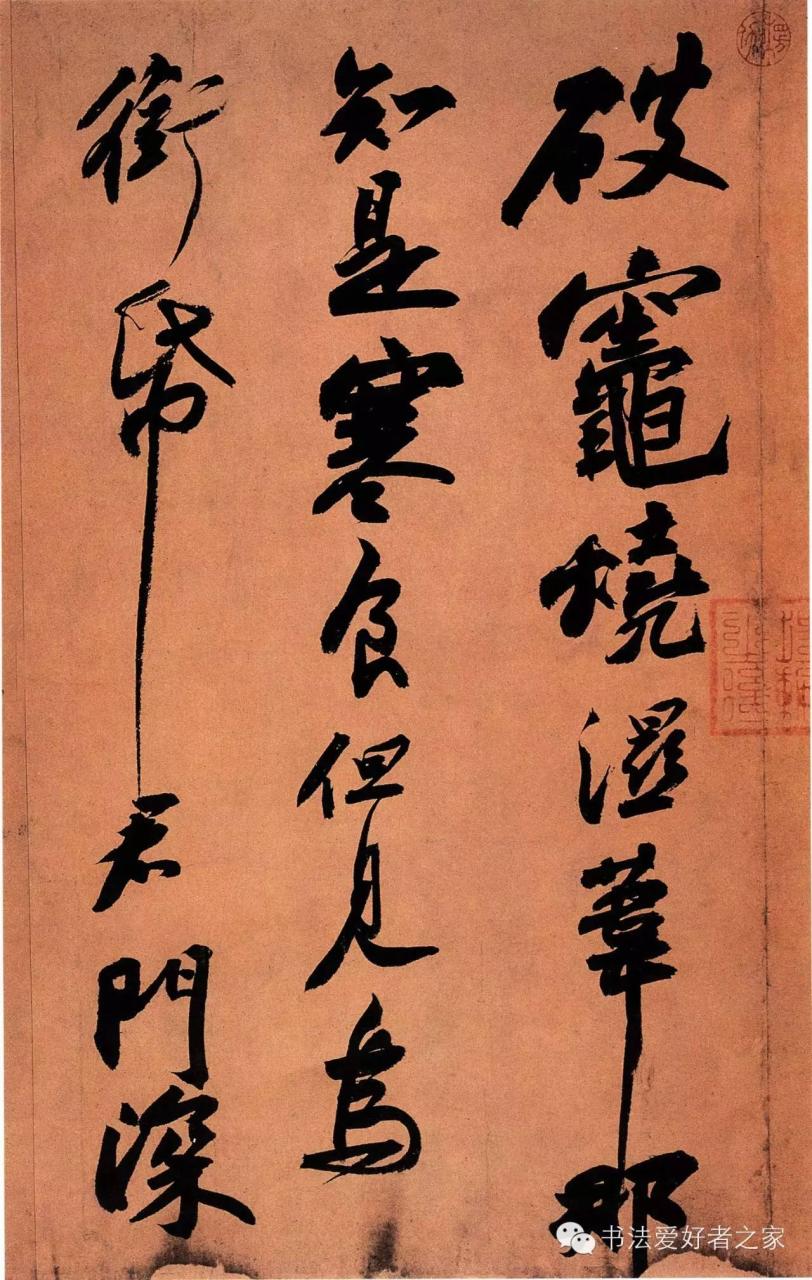 破竈燒濕葦那
知是寒食但見烏
銜帋君門深
书法爱好者之家